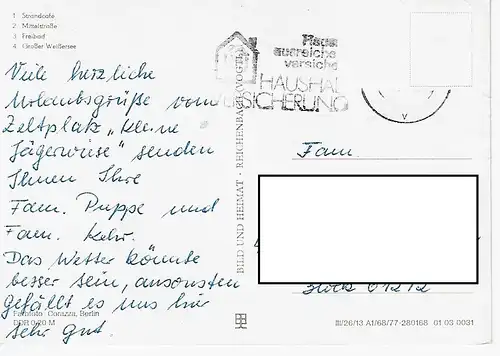 1 Strandcafé
2 Mittelstraße
3 Freibad
4 Großer Weißersee
Viele herzliche
Urlaubsgrüße vom
Zeltplatz „Kleine
Jägerwiese" senden
Ihnen Ihre
Fam. Puppe und
Fam. Kehr.
Das Wetter könnte
besser sein, ansonsten
gefällt es uns hier
sehr gut.
Farbfoto: Corazza, Berlin
DDR 0,20 M
BILD UND HEIMAT · REICHENBACH (VOGTL)
ausreiche
versiche
HAUSHAL
VERSICHERUNG
Fam.
III/26/13 A1/68/77-280168 01 03 0031